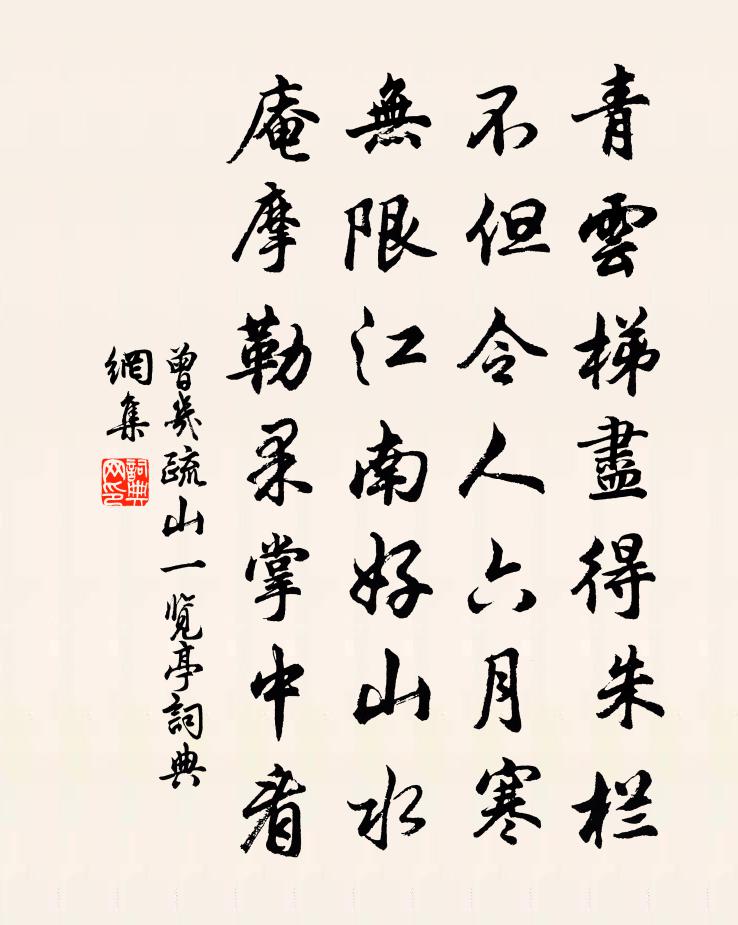 青雲梯盡得朱栏
不但令人六月寒
無限江南好山水
庵摩勒果掌中看
曾幾疏山一览亭詞典
網集
詞典网印